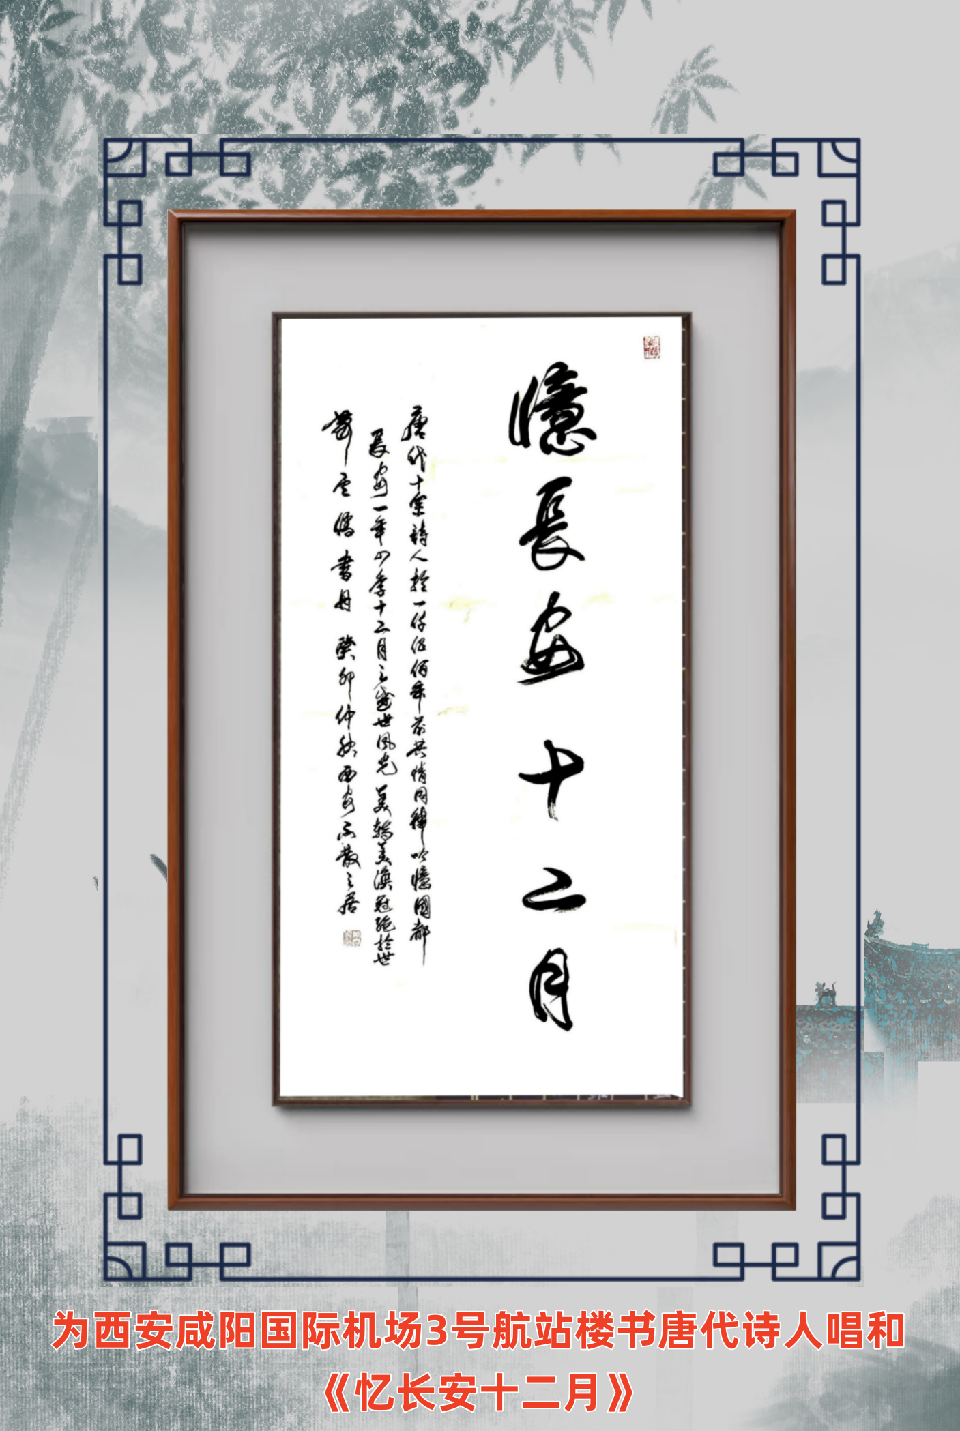 憶長安十二月
唐代十余詩人於一仟伍佰年前共情同律吟憶國都
長安一年四季十二月之盛世風光 美輪美渙冠絕於世
書丹 癸卯仲秋西安不散之居
为西安咸阳国际机场3号航站楼书唐代诗人唱和
《忆长安十二月》